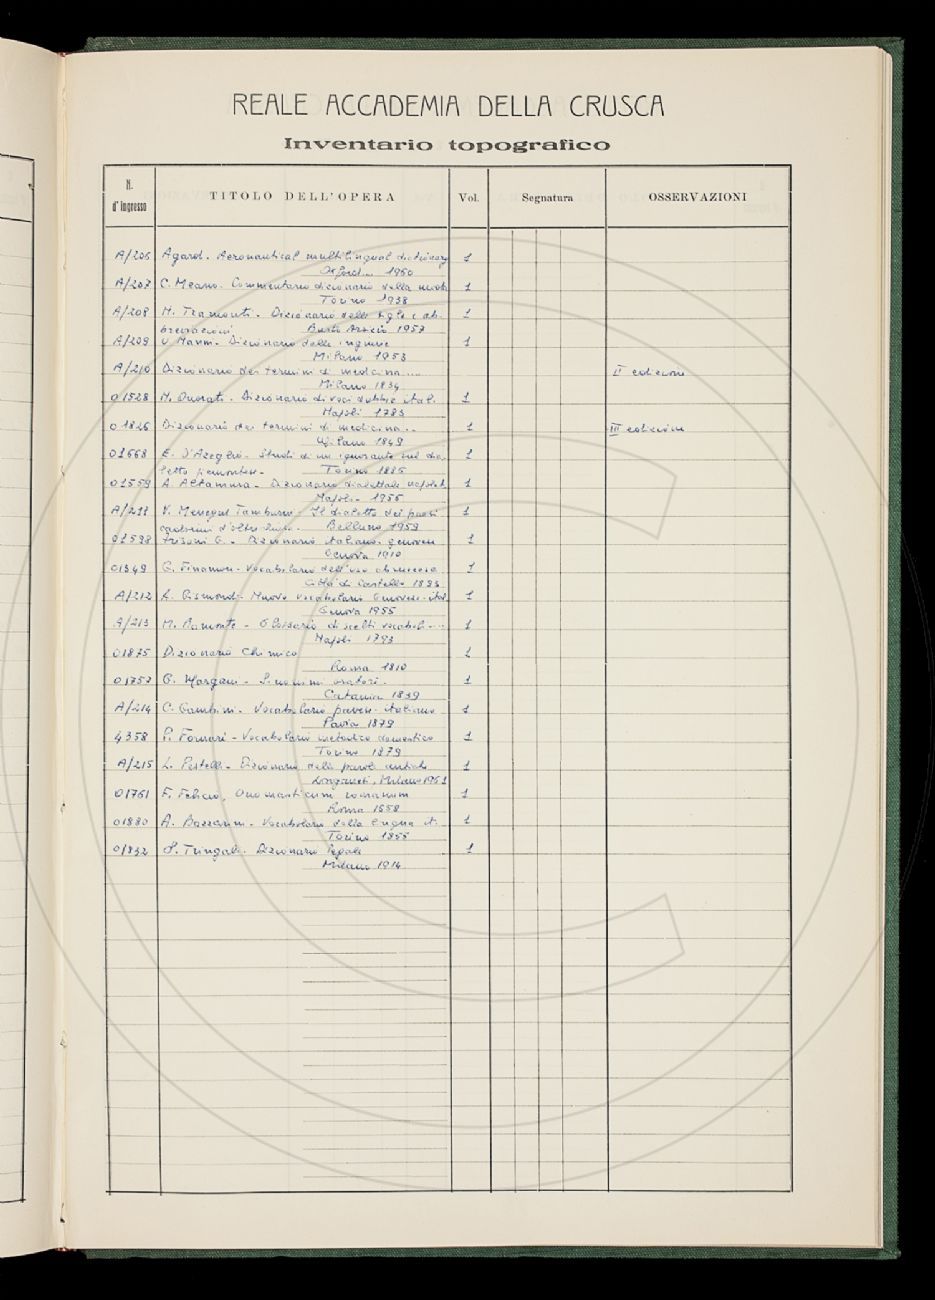 REALE ACCADEMIA DELLA CRUSCA
Inventario topografico
N. d'ingresso TITOLO DELL'OPERA Vol. Segnatura OSSERVAZIONI
A/206 Agard. Aeronautical multilingual dictionary 1
Oxford 1960
A/207 C. Meano. Commentario dizionario della moda 1
Torino 1938
A/208 M. Tramonti. Dizionario delle sigle e ab- 1
breviazioni Busto Arsizio 1957
A/209 Dizionario delle ingiurie 1
Milano 1953
A/210 Dizionario dei termini di medicina.... II edizione
Milano 1834
01528 M. Onorati. Dizionario di voci dubbie ital. 1
Napoli 1783
01826 Dizionario dei termini di medicina... 1 III edizione
Milano 1849
01668 E. D'Azeglio. Studi di un ignorante sul dia- 1
letto piemontese. Torino 1886
01559 A. Altamura - Dizionario dialettale napolet. 1
Napoli - 1956
A/211 V. Menegus Tamburin. Il dialetto dei paesi 1
cadorini d'oltrechiusa. Belluno 1959
01598 Frisoni G. - Dizionario italiano-genovese 1
Genova 1910
01349 G. Finamore. Vocabolario dell'uso abruzzese 1
Città di Castello 1893
A/212 A. Gismondi. Nuovo vocabolario Genovese-ital. 1
Genova 1955
A/213 M. Bamonte - Glossario di scelti vocaboli... 1
Napoli 1793
01875 Dizionario Chimico
Roma 1810
01757 G. Margani - Sinonimi oratori. 1
Catania 1839
A/214 C. Gambini. Vocabolario pavese-italiano 1
Pavia 1879
4358 P. Fornari - Vocabolario metodico domestico 1
Torino 1879
A/215 L. Pestelli - Dizionario delle parole antiche 1
Longanesi, Milano 1961
01761 F. Felicio, Onomasticum romanum 1
Roma 1658
01880 A. Bazzarini. Vocabolario della lingua it. 1
Torino 1855
01832 Tringali. Dizionario legale 1
Milano 1914